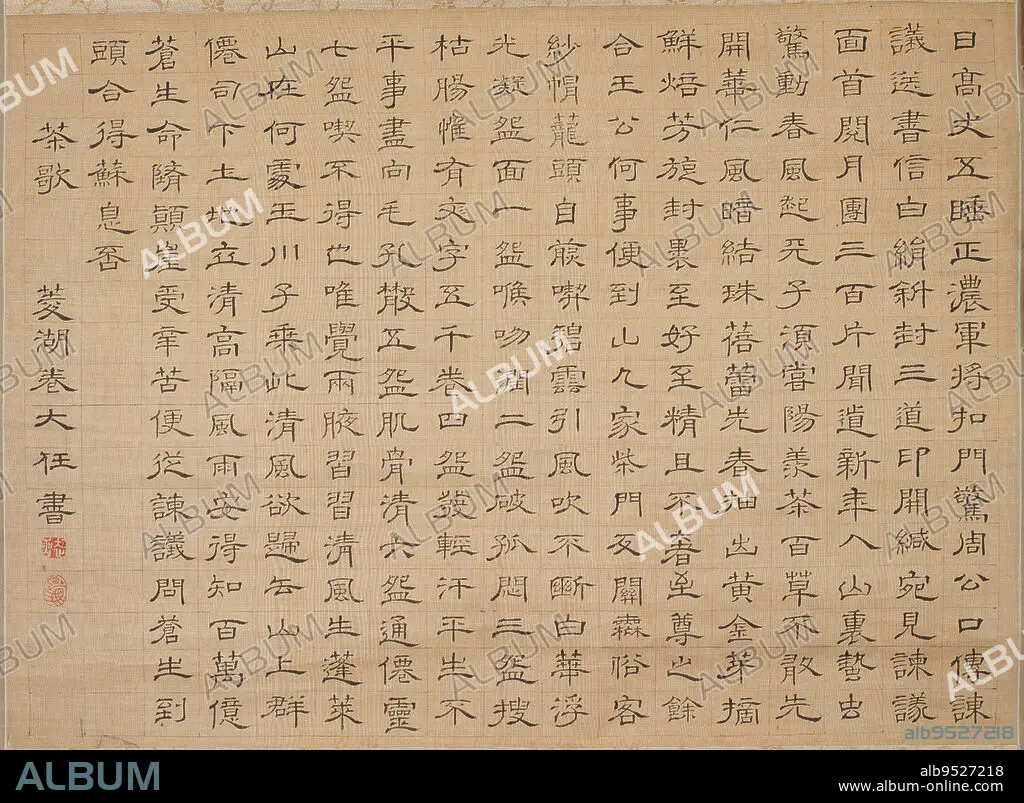 日高丈五睡正濃軍將扣門驚周公口傳諫
議送書信白絹斜封三道印開緘宛見諫議
面首閱月團三百片聞道新年入山裏蟄虫
驚動春風起天子須嘗陽羨茶百草不敢先
開華仁風暗結珠蓓蕾先春抽出黃金芽摘
鮮焙芳旋封裹至好至精且不奢至尊之餘
合王公何事便到山人家柴門反關無俗客
紗帽籠頭自煎喫碧雲引風吹不斷白華浮
光凝盌面一盌喉吻潤二盌破孤悶三盌搜
枯腸惟有文字五千卷四盌發輕汗平生不
平事盡向毛孔散五盌肌骨清六盌通僊靈
七盌喫不得也唯覺兩腋習習清風生蓬萊
山在何處玉川子乘此清風欲歸去山上群
僊司下土地立清高隔風雨安得知百萬億
蒼生命墮顛崖受辛苦便從諫議問蒼生到
頭合得蘇息否
茶歌 菱湖卷大任書
alb9527218
ALBUM
alb9527218
www.album-online.com